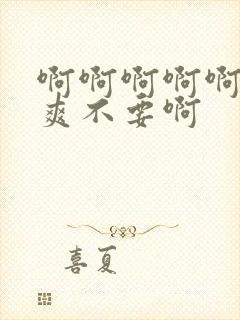 啊啊啊啊啊
爽不要啊
喜夏